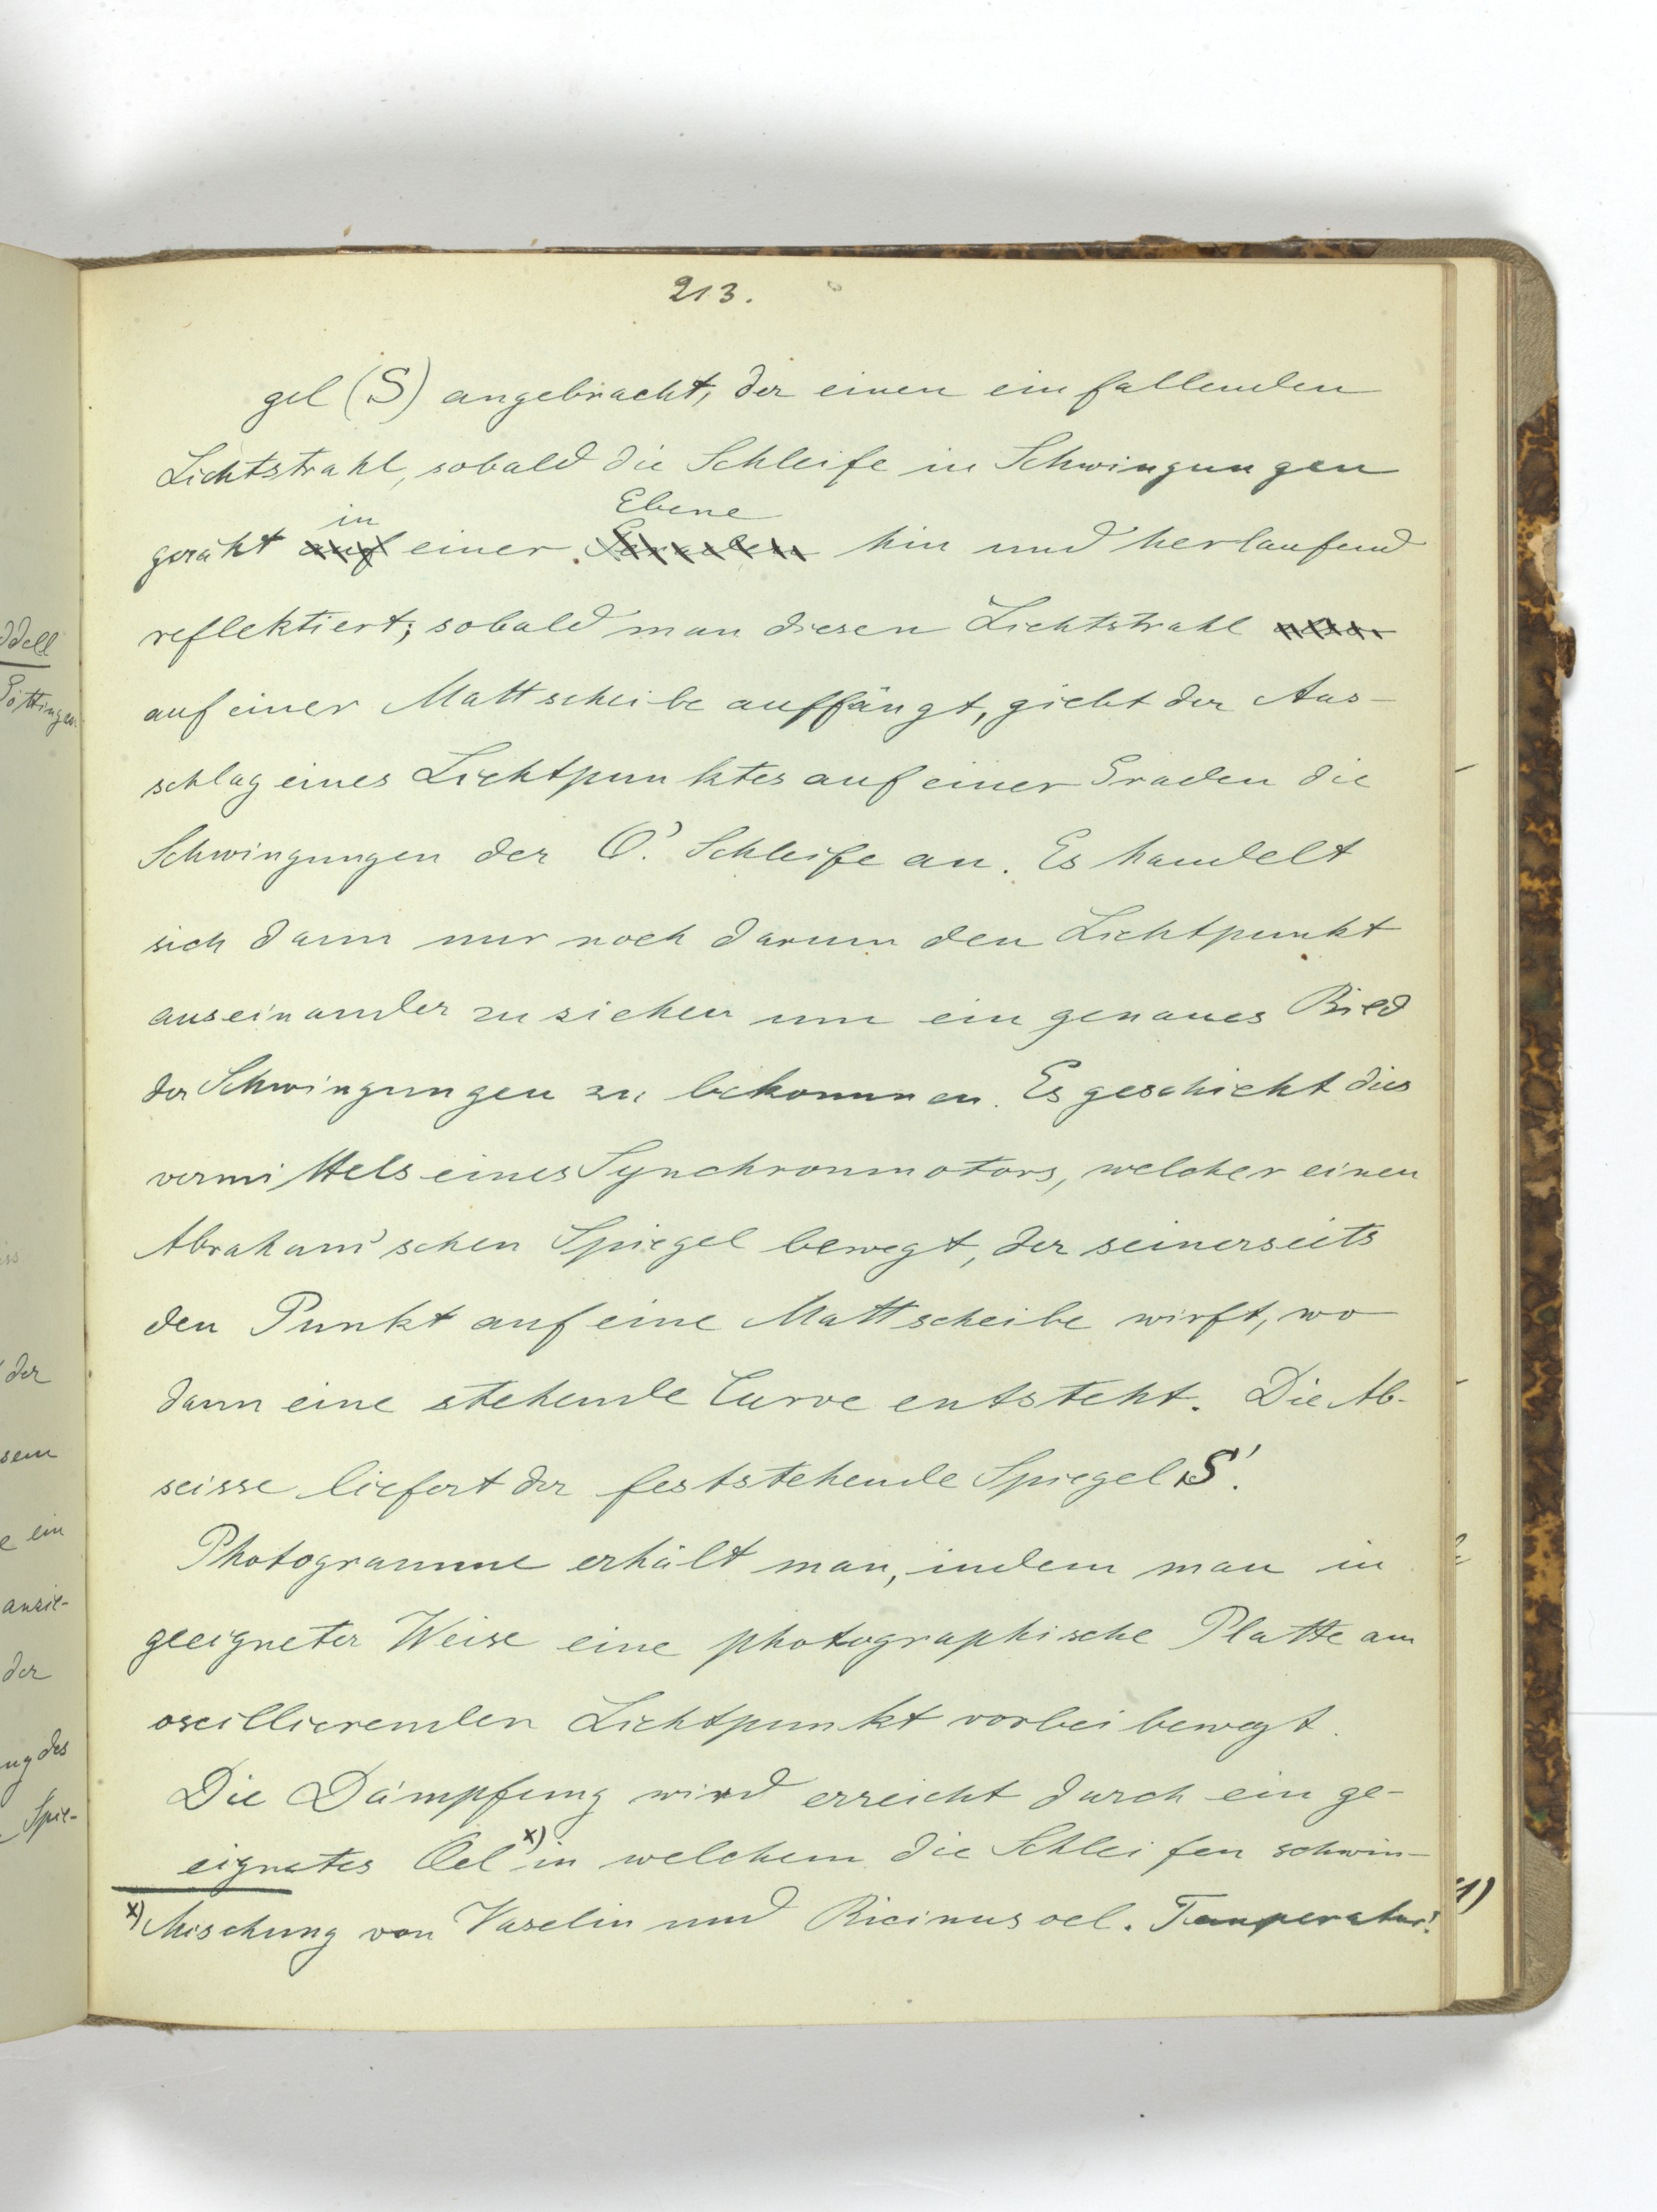 213.
gel (S) angebracht, der einen einfallenden
Lichtstrahl, sobald die Schleife in Schwingungen
in Ebene
geräht auf einer Geraden hin und herlaufend
reflektiert; sobald man diesen Lichtstrahl
auf einer Mattscheibe auffängt, giebt der Aus-
schlag eines Lichtpunktes auf einer Graden die
Schwingungen der O'. Schleife an. Es handelt
sich dann nur noch darum den Lichtpunkt
auseinander zu ziehen um ein genaues Bild
der Schwingungen zu bekommen. Es geschieht dies
vermittels eines Synchronmotors, welcher einen
Abraham'schen Spiegel bewegt, der seinerseits
den Punkt auf eine Mattscheibe wirft, wo
dann eine stehende Curve entsteht. Die Ab-
scisse liefert der feststehende Spiegel S'.
Photogramme erhält man, indem man in
geeigneter Weise eine photographische Platte am
oscillierenden Lichtpunkt vorbei bewegt.
Die Dämpfung wird erreicht durch ein ge-
eignetes Oel x) in welchem die Schleifen schwin-
x) Mischung von Vaselin und Ricinusoel. Temperatur!
ddell
Göttingen.
der
sem
e ein
anzie-
der
ng des
Spie-
1)